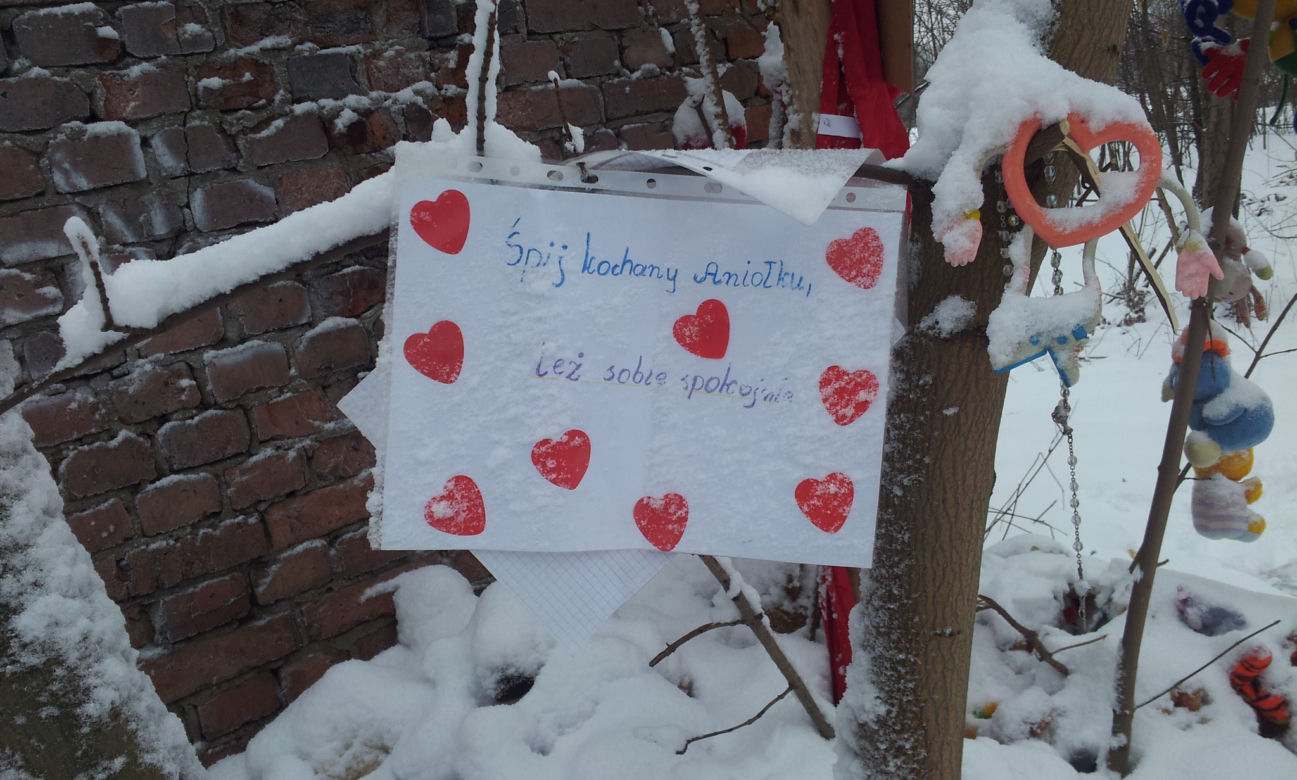 Śpij kochany Aniołku,
Leż sobie spokojnie